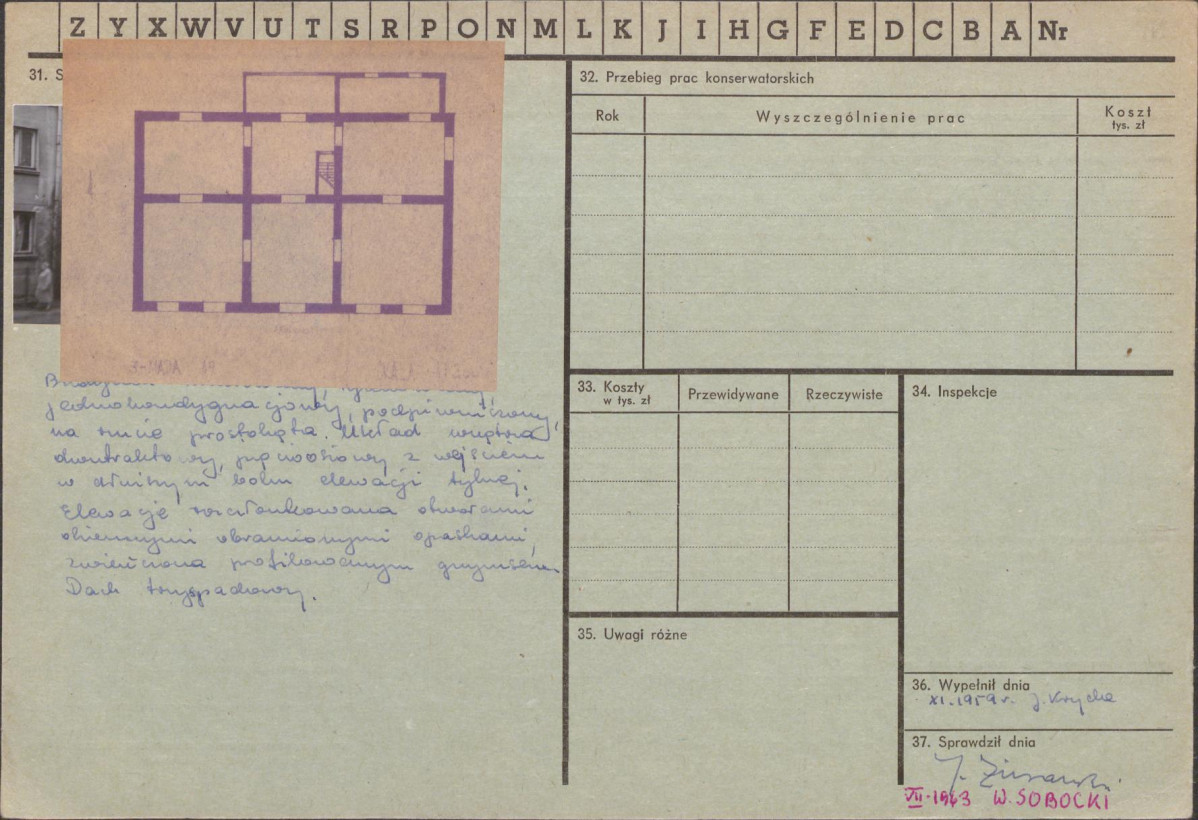 Z Y X W V U T S R P O N M L K J I H G F E D C B A Nr
31. S
jednokondygnacjowy, podpiwniczony,
na rzucie prostokąta. Układ wnętrza
dwutraktowy, pięcioosiowy z wejściem
w dłuższym boku elewacji tylnej.
Elewacje rozczłonkowana otworami
okiennymi obramionymi opaskami,
zwieńczona profilowanym gzymsem.
Dach trzyspadowy.
32. Przebieg prac konserwatorskich
Rok
Wyszczególnienie prac
Koszt
tys. zł
33. Koszty
w tys. zł
Przewidywane
Rzeczywiste
34. Inspekcje
35. Uwagi różne
36. Wypełnił dnia
XI.1959 r. J. Krycha
37. Sprawdził dnia
VII-1963 W. SOBOCKI